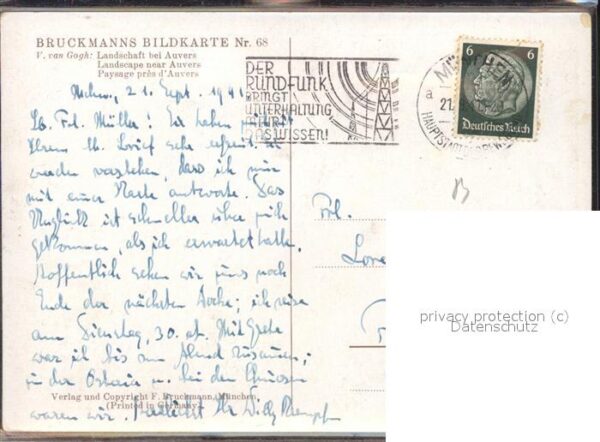 BRUCKMANNS BILDKARTE Nr. 68
V. van Gogh: Landschaft bei Auvers
Landscape near Auvers
Paysage près d'Auvers
DER
RUNDFUNK
BRINGT
UNTERHALTUNG
WISSEN!
MÜNCHEN
a
21
HAUPTSTADT
6 6
Deutsches Reich
21. Sept. 1941
Lb. Frl. Müller! Sie haben mich mit
Ihrem lb. Brief sehr erfreut
werden verstehen, dass ich nur
mit einer Karte antworte. Das
Unglück ist schneller über mich
gekommen, als ich erwartet hatte.
Hoffentlich sehen wir uns noch
Ende der nächsten Woche; ich reise
am Dienstag, 30. ab. Mit Grete
war ich bis am Abend zusammen;
in der Osteria bei den
waren wir. Herzlichst Ihr Willy
Frl.
Verlag und Copyright F. Bruckmann, München.
(Printed in Germany)
privacy protection (c)
Datenschutz